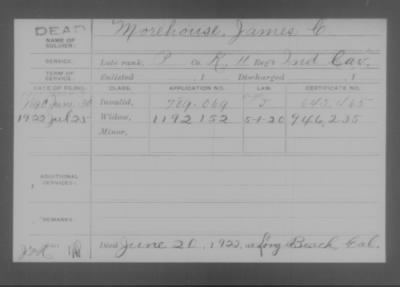 DEAD
NAME OF SOLDIER: Morehouse, James C.
SERVICE: Late rank, P Co. K, 11 Reg't Ind Cav.
TERM OF SERVICE: Enlisted , 1 Discharged , 1
DATE OF FILING. CLASS. APPLICATION NO. LAW. CERTIFICATE NO.
1890 June 30 Invalid, 789.069 643.465
1922 Jul 25 Widow, 1192152 5-1-20 946,235
Minor,
ADDITIONAL SERVICES:
REMARKS:
Died June 20, 1922, at Long Beach Cal.